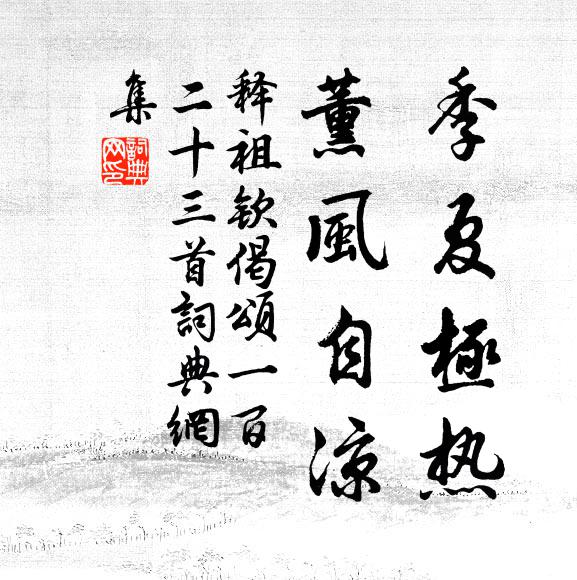 季夏極热
薰風自涼
释祖钦偈頌一百
二十三首詞典網
集
詞典
网印